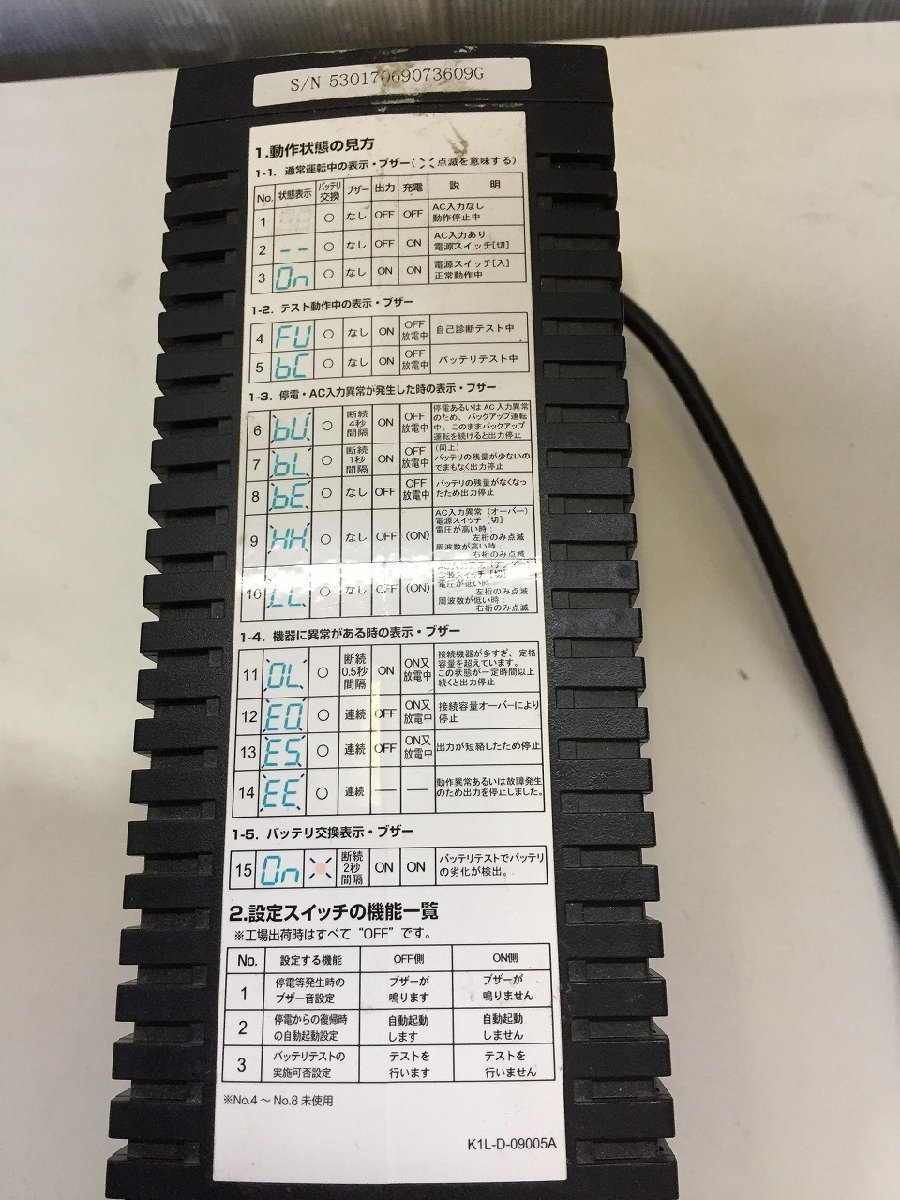 S/N 53017069073609G
1.動作状態の見方
1-1. 通常運転中の表示・ブザー( 点滅を意味する)
No. 状態表示 バッテリ交換 ブザー 出力 充電 説 明
1 ○ なし OFF OFF AC入力なし
動作停止中
2 -- ○ なし OFF ON AC入力あり
電源スイッチ[切]
3 On ○ なし ON ON 電源スイッチ[入]
正常動作中
1-2. テスト動作中の表示・ブザー
4 FU ○ なし ON OFF 放電中 自己診断テスト中
5 bC ○ なし ON OFF 放電中 バッテリテスト中
1-3. 停電・AC入力異常が発生した時の表示・ブザー
6 bU ○ 断続 4秒 間隔 ON OFF 放電中 停電あるいは AC 入力異常
のため、バックアップ運転
中、このままバックアップ
運転を続けると出力停止
7 bL ○ 断続 1秒 間隔 ON OFF 放電中 (同上)
バッテリの残量が少ないの
でまもなく出力停止
8 bE ○ なし OFF OFF 放電中 バッテリの残量がなくなっ
たため出力停止
9 HH ○ なし OFF (ON) AC入力異常(オーバー)
電源スイッチ[切]
電圧が高い時:
左桁のみ点滅
周波数が高い時:
右桁のみ点滅
10 LL ○ なし OFF (ON)
電源スイッチ[切]
電圧が低い時
左桁のみ点滅
周波数が低い時
右桁のみ点滅
1-4. 機器に異常がある時の表示・ブザー
11 OL ○ 断続 0.5秒 間隔 ON ON又 放電中 接続機器が多すぎ、定格
容量を超えています。
この状態が一定時間以上
続くと出力停止
12 EO ○ 連続 OFF ON又 放電中 接続容量オーバーにより
停止
13 ES ○ 連続 OFF ON又 放電中 出力が短絡したため停止
14 EE ○ 連続 — — 動作異常あるいは故障発生
のため出力を停止しました。
1-5. バッテリ交換表示・ブザー
15 On 断続 2秒 間隔 ON ON バッテリテストでバッテリ
の劣化が検出。
2.設定スイッチの機能一覧
※工場出荷時はすべて “OFF” です。
No. 設定する機能 OFF側 ON側
1 停電等発生時の
ブザー音設定 ブザーが
鳴ります ブザーが
鳴りません
2 停電からの復帰時
の自動起動設定 自動起動
します 自動起動
しません
3 バッテリテストの
実施可否設定 テストを
行います テストを
行いません
※No.4 ~ No.8 未使用
K1L-D-09005A